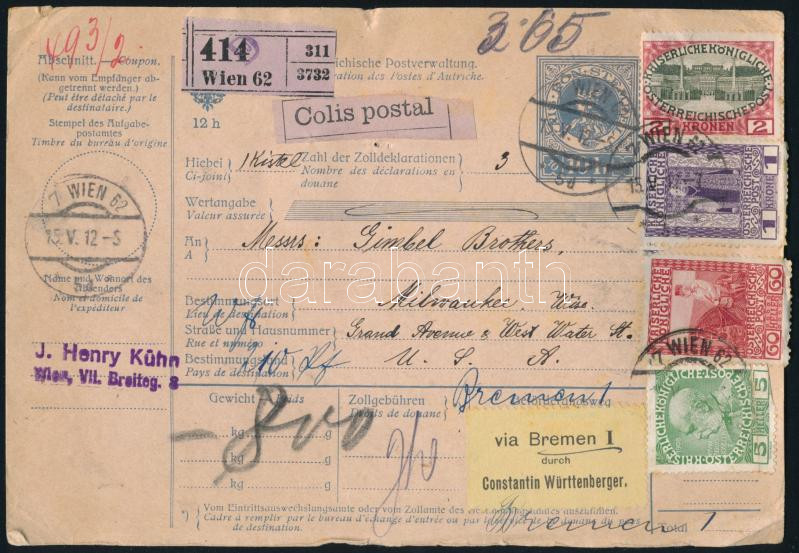 493/2
3·65
Abschnitt. Coupon.
(Kann vom Empfänger ab-
getrennt werden.)
(Peut être détaché par le
destinataire.)
Stempel des Aufgabe-
postamtes
Timbre du bureau d'origine
7 WIEN 62
15.V.12-S
Name und Wohnort des
Absenders
Nom et domicile de
l'expéditeur
J. Henry Kühn
Wien, VII. Breiteg. 8
414
Wien 62
311
3732
ichische Postverwaltung.
ration des Postes d'Autriche.
Colis postal
12 h
Hiebei
Ci-joint
1 Kistel
Zahl der Zolldeklarationen
Nombre des déclarations en
douane
3
Wertangabe
Valeur assurée
An
A
Messrs: Gimbel Brothers,
Bestimmungsort
Lieu de destination
Milwaukee, Wisc.
Straße und Hausnummer
Rue et numéro
Grand Avenue & West Water St.
Bestimmungsland
Pays de destination
U. S. A.
Gewicht Poids
kg g
kg g
kg g
Zollgebühren
Droits de douane
Beförderungsweg
via Bremen I
durch
Constantin Württenberger.
Bremen
Vom Eintrittsauswechslungsamte oder vom Zollamte des
Cadre à remplir par le bureau d'échange d'entrée ou par le
de destination.
KAISERLICHE KÖNIGLICHE
ÖSTERREICHISCHE POST
2 KRONEN 2
KAISERLICHE KÖNIGLICHE
ÖSTERREICHISCHE POST
1 KRONE 1
7 WIEN 62
KAISERLICHE KÖNIGLICHE
ÖSTERREICHISCHE POST
60 HELLER 60
7 WIEN 62
KAISERLICHE KÖNIGLICHE ÖSTERREICHISCHE POST
5 HELLER 5
darabanth